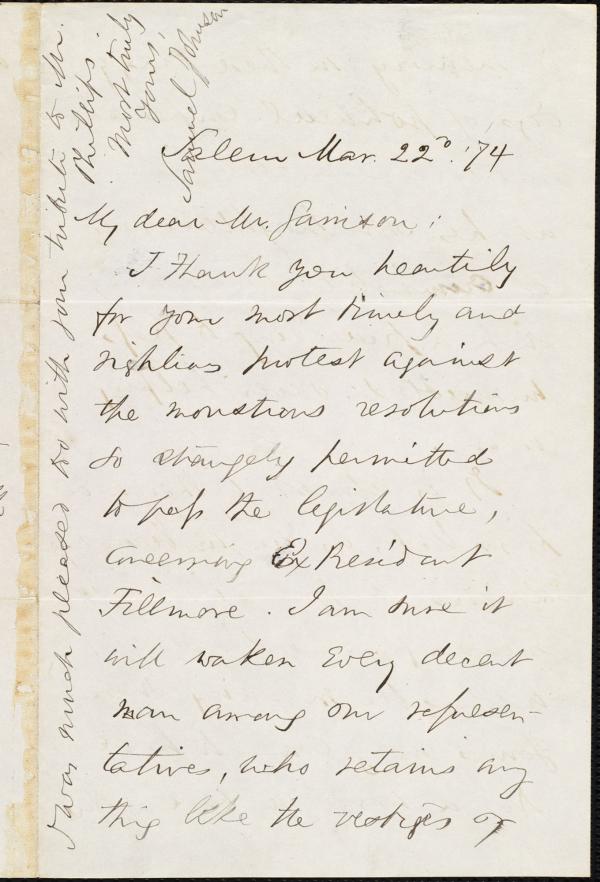 Salem Mar. 22d. '74
My dear Mr. Garrison:
I thank you heartily
for your most timely and
righteous protest against
the monstrous resolutions
so strangely permitted
to pass the legislature,
concerning Ex President
Fillmore. I am sure it
will waken every decent
man among our represen-
tatives, who retains any
thing like the vestiges of
I was much pleased too with your tribute to Mr.
Phillips.
Most truly
yours,
Samuel Johnson